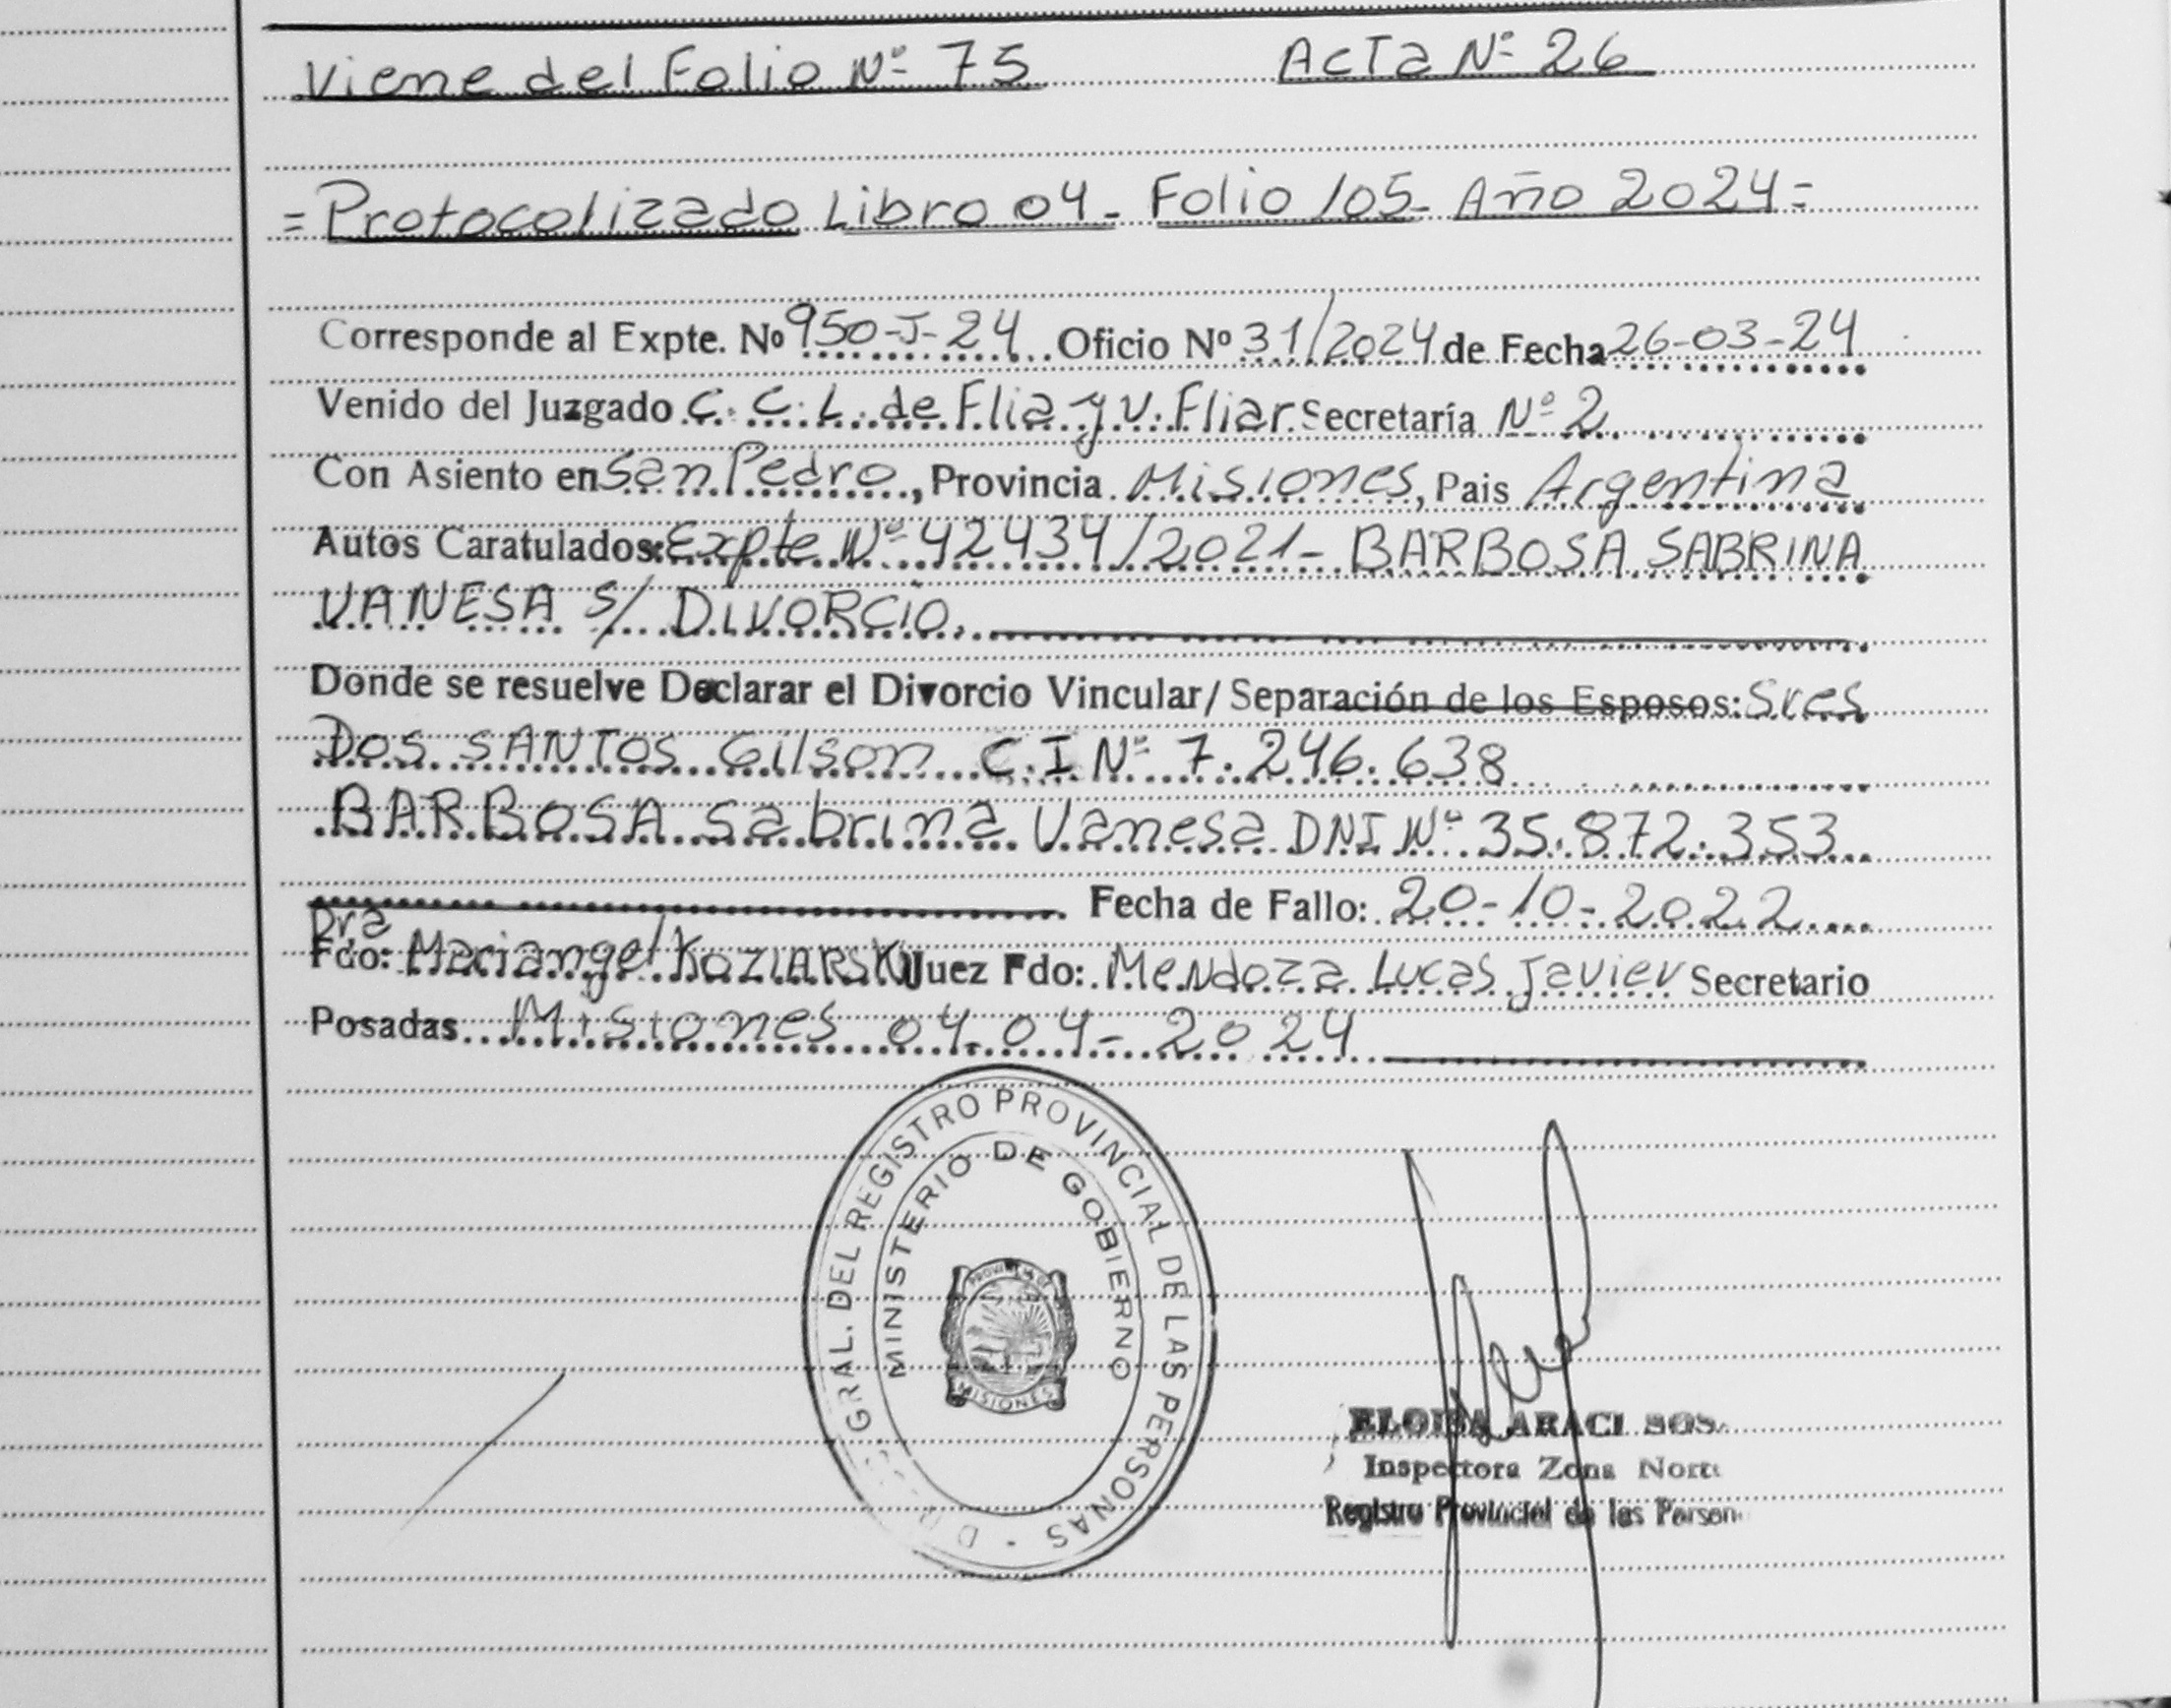 Viene del Folio Nº 75 Acta Nº 26
= Protocolizado Libro 04 - Folio 105 - Año 2024 =
Corresponde al Expte. Nº 950-J-24 Oficio Nº 31/2024 de Fecha 26-03-24
Venido del Juzgado C. C. L. de Flia y V. Fliar. Secretaría Nº 2
Con Asiento en San Pedro, Provincia Misiones, Pais Argentina
Autos Caratulados: Expte Nº 42434/2021- BARBOSA SABRINA
VANESA s/ DIVORCIO.
Donde se resuelve Declarar el Divorcio Vincular/ Separación de los Esposos: Sres
DOS SANTOS Gilson C.I Nº 7.246.638
BARBOSA Sabrina Vanesa DNI Nº 35.872.353
Fecha de Fallo: 20-10-2022
Dra
Fdo: Mariangel KOZIARSKI Juez Fdo: Mendoza Lucas Javier Secretario
Posadas Misiones 04-04-2024
GRAL. DEL REGISTRO PROVINCIAL DE LAS PERSONAS
MINISTERIO DE GOBIERNO
PROVINCIA DE
MISIONES
ELOISA ARACI SOS
Inspectora Zona Norte
Registro Provincial de las Person